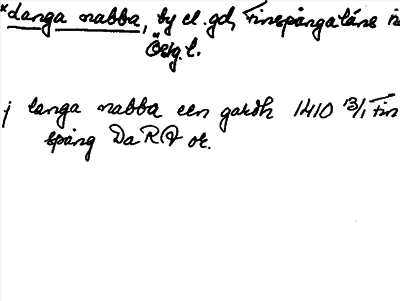 *danga nabba, by el. gd, Finspångaläns h
Östg. l.
j langa nabba een gardh 1410 13/1 Fin
spång Da RP or.